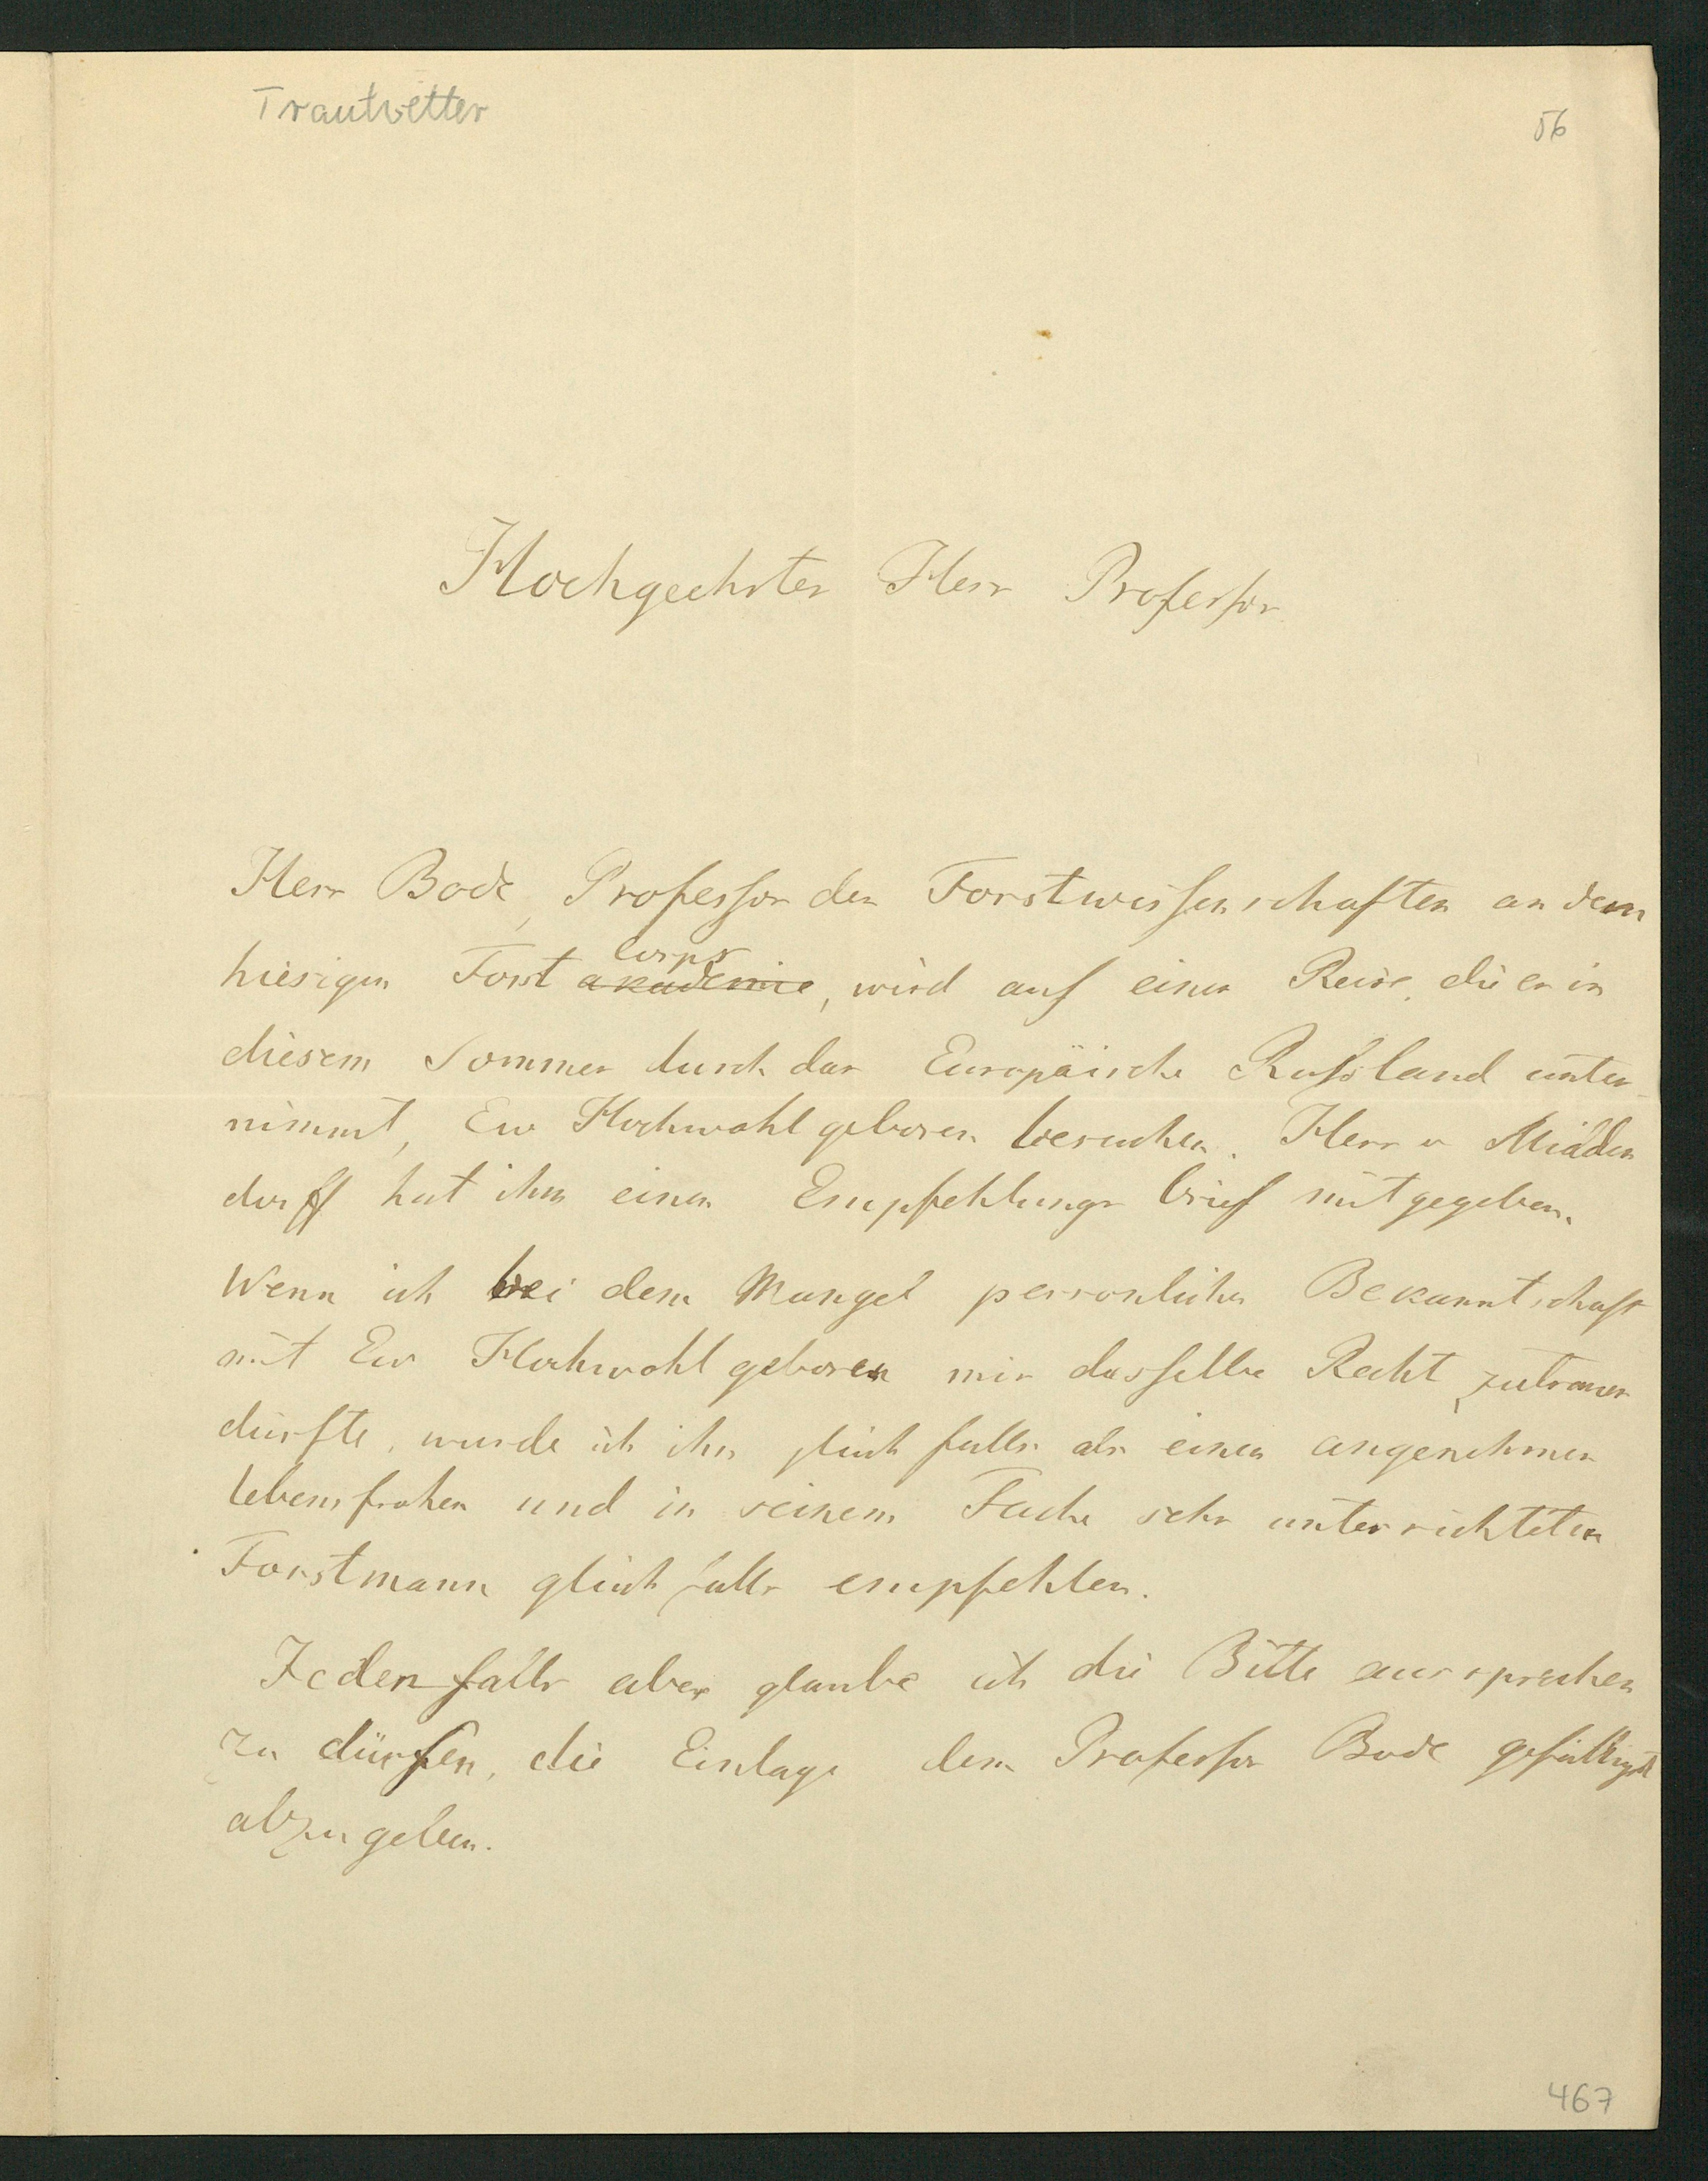 Trautvetter
56
Hochgeehrter Herr Professor
Herr Bode, Professor der Forstwissenschaften an dem
corps
hiesigen Forst akademie, wird auf einer Reise, die er in
diesem Sommer durch das Europäische Russland unter-
nimmt, Ew Hochwohlgeboren besuchen. Herr v Midden
dorff hat ihm einen Empfehlungs brief mitgegeben.
Wenn ich bei dem Mangel personlicher Bekanntschaft
mit Ew Hochwohlgeboren mir dasselbe Recht zutrauen
dürfte, wurde ich ihn gleich falls als einen angenehmen
lebensfrohen und in seinem Fache sehr unterrichteten
Forstmann gleich falls empfehlen.
Jedenfalls aber glaube ich die Bitte aussprechen
zu dürfen, die Einlage dem Professor Bode gefälligst
abzugeben.
467